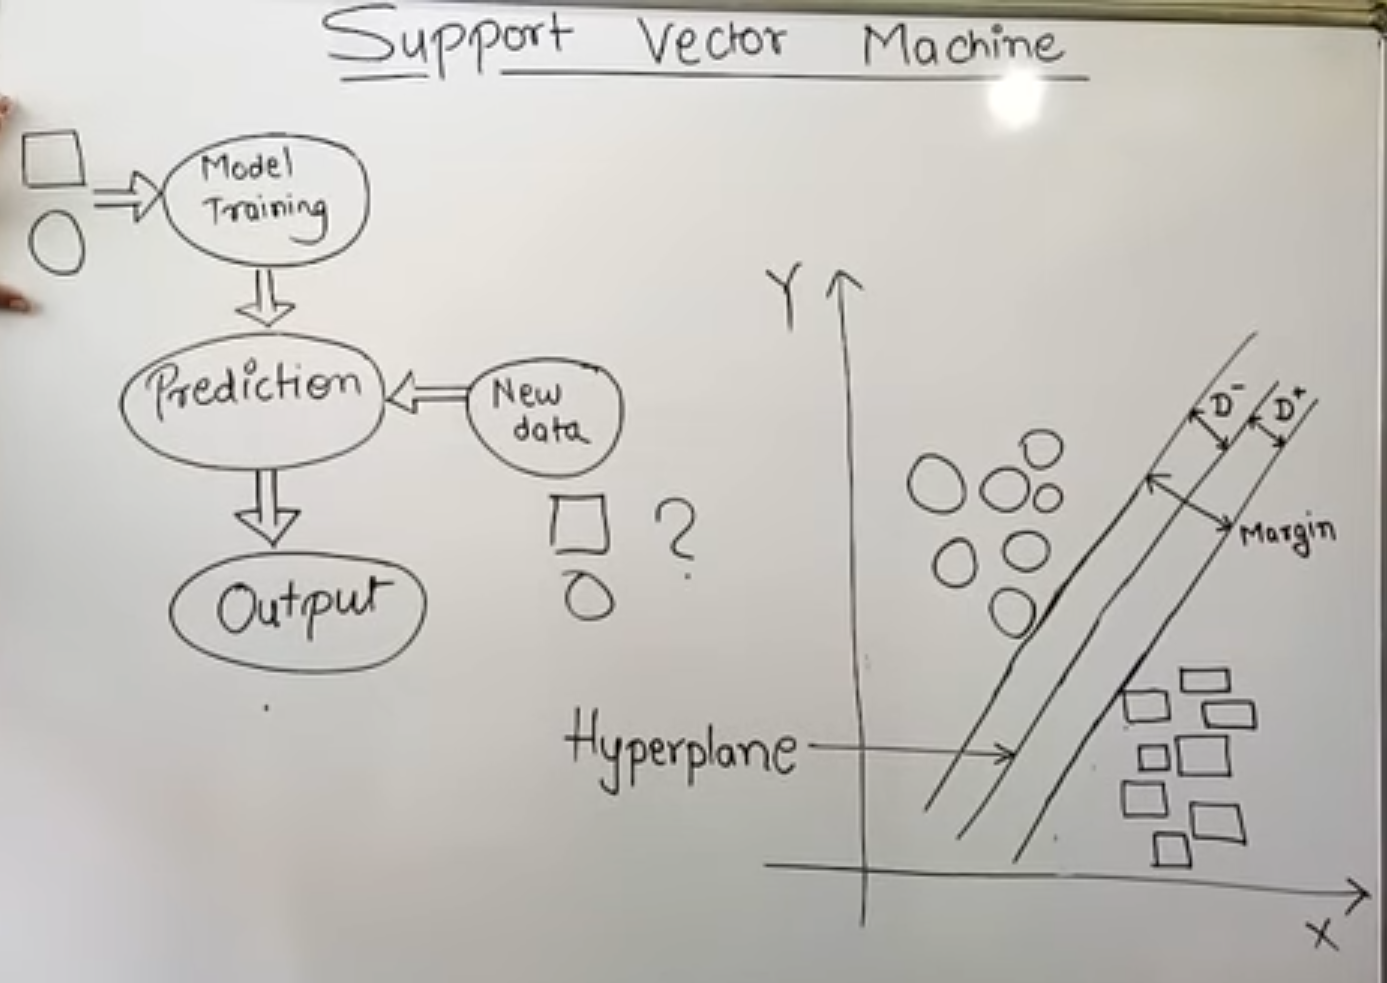 Support Vector Machine
Model
Training
Prediction
New
data
?
Output
Y
D⁻
D⁺
Margin
Hyperplane
X